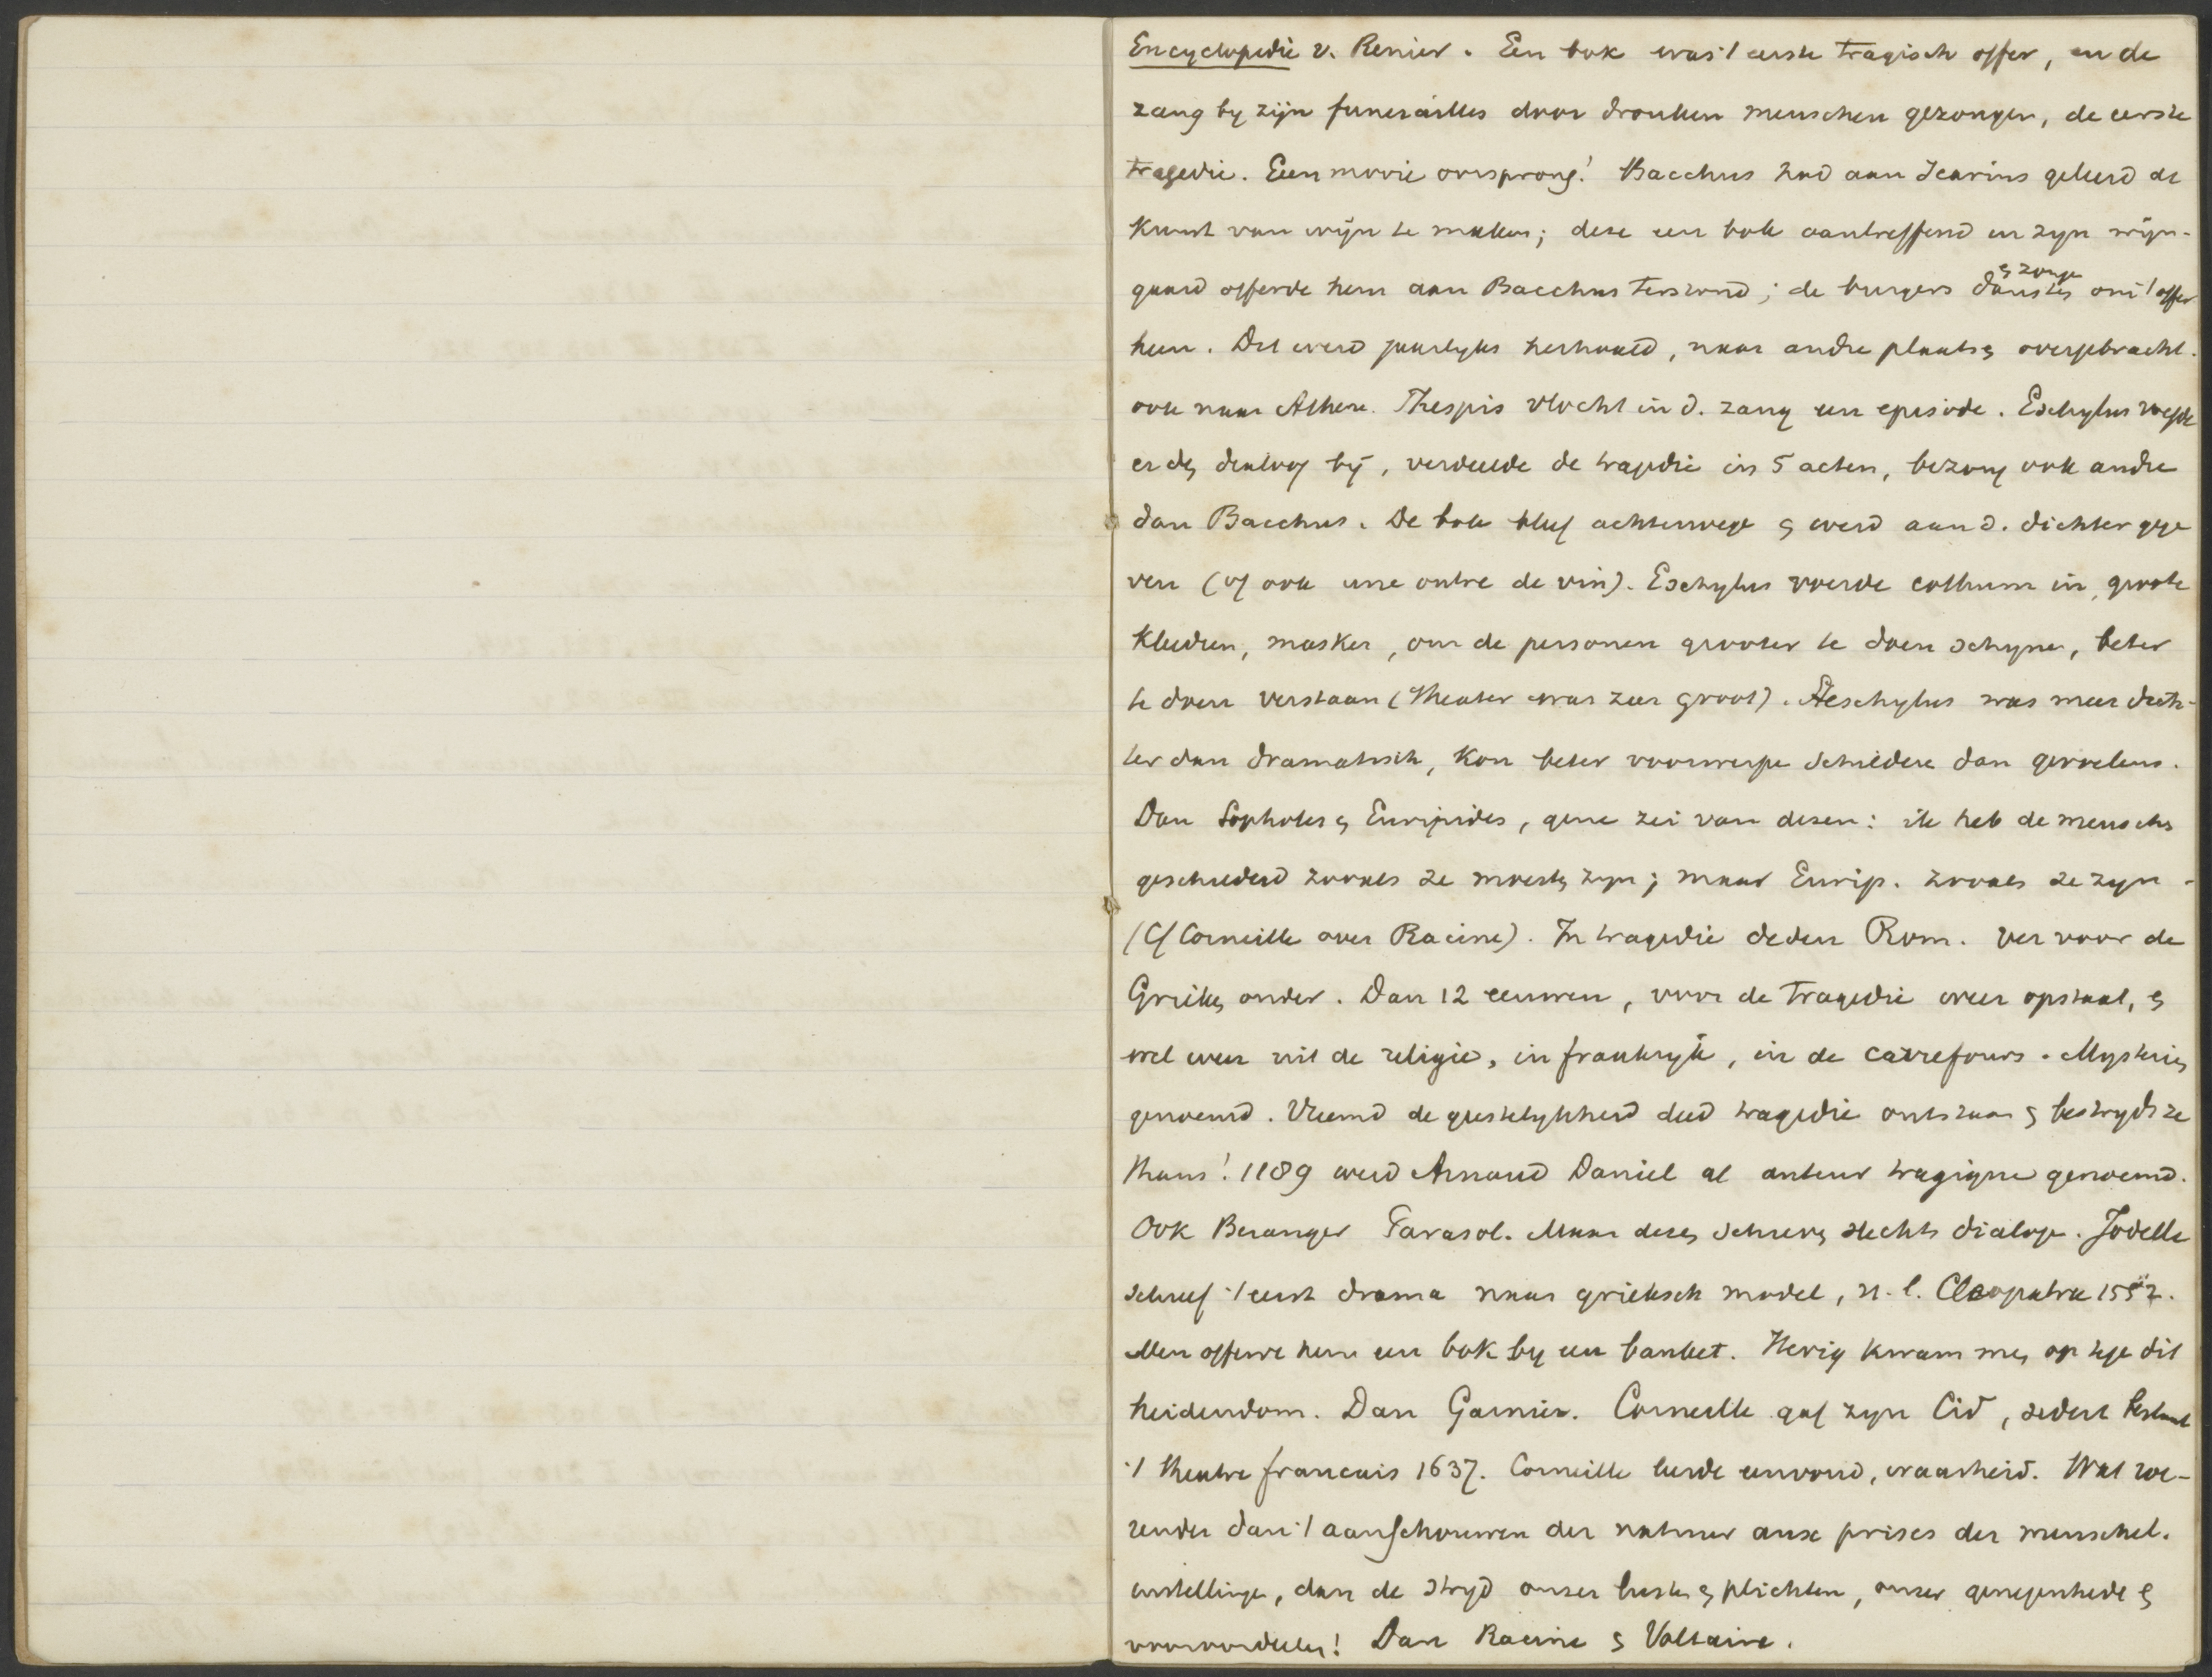 Encyclopedie v. Renier. Een bok was 't eerste tragisch offer, en de
zang by zijn funerailles door dronken menschen gezongen, de eerste
tragedie. Een mooie oorsprong! Bacchus had aan Icarius geleerd de
kunst van wijn te maken; deze een bok aantreffend in zyn wijn-
gaard offerde hem aan Bacchus terstond; de burgers dansten & zonge om 't offer
heen. Dit werd jaarlyks herhaald, naar andre plaatsen overgebracht.
ook naar Athene. Thespis vlocht in d. zang een episode. Eschylus voegde
er den dialoog bij, verdeelde de tragedie in 5 acten, bezong ook andre
dan Bacchus. De bok bleef achterwege & werd aan d. dichter gege
ven (of ook une outre de vin). Eschylus voerde cothurn in, groote
kleedren, masker, om de personen grooter te doen schyne, beter
te doen verstaan (theater was zeer groot). Aeschylus was meer dich-
ter dan dramatisch, kon beter voorwerpe schildere dan gevoelens.
Dan Sophokes & Euripides, gene zei van dezen: ik heb de menschen
geschilderd zooals ze moesten zyn; maar Eurip. zooals ze zyn -
(Cf Corneille over Racine). In tragedie deden Rom. ver voor de
Grieken onder. Dan 12 eeuwen, voor de tragedie weer opstaat, &
wel weer uit de religie, in frankryk, in de carrefours. Mysterien
genoemd. Vreemd de geestelykheid deed tragedie ontstaan & bestrydt ze
thans! 1189 werd Arnaud Daniel al auteur tragique genoemd.
Ook Beranger Parasol. Maar dezen schreven slechts dialoge. Jodelle
schreef 't eerst drama naar grieksch model, n.l. Cleopatra 1552.
Men offerde hem een bok by een banket. Hevig kwam men op tege dit
heidendom. Dan Garnier. Corneille gaf zyn Cid, sedert bestaat
't theatre francais 1637. Corneille leerde eenvoud, waarheid. Wat roe-
render dan 't aanschouwen der natuur aux prises der menschel.
instellinge, dan de stryd onzer lusten & plichten, onzer genegenhede &
vooroordeelen! Dan Racine & Voltaire.